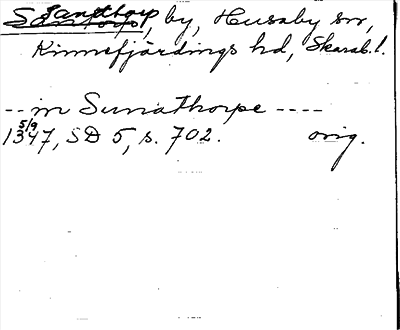 Sandtorp, by, Husaby sn,
Kinnefjärdings hd, Skarab. l.
-- in Sunathorpe ----
5/9
1347, SD 5, s. 702. orig.